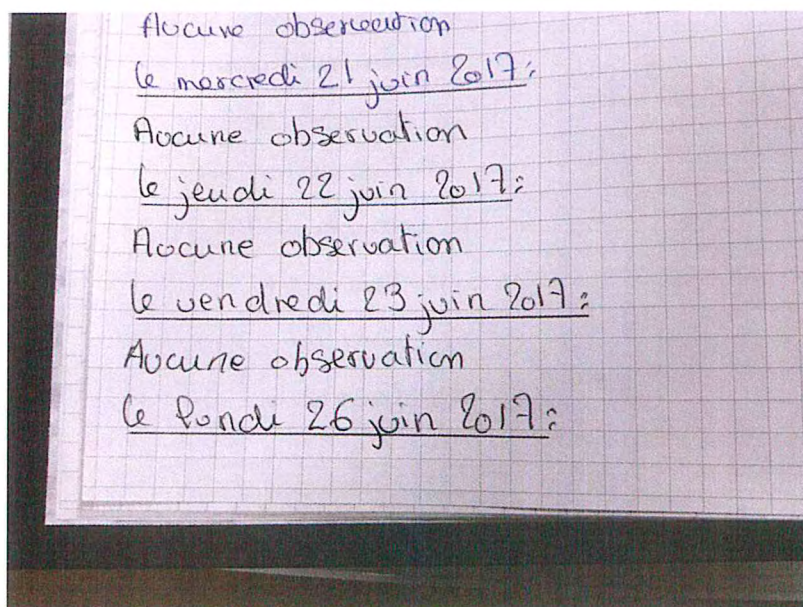 Aucune observation
le mercredi 21 juin 2017:
Aucune observation
le jeudi 22 juin 2017:
Aucune observation
le vendredi 23 juin 2017:
Aucune observation
le lundi 26 juin 2017: